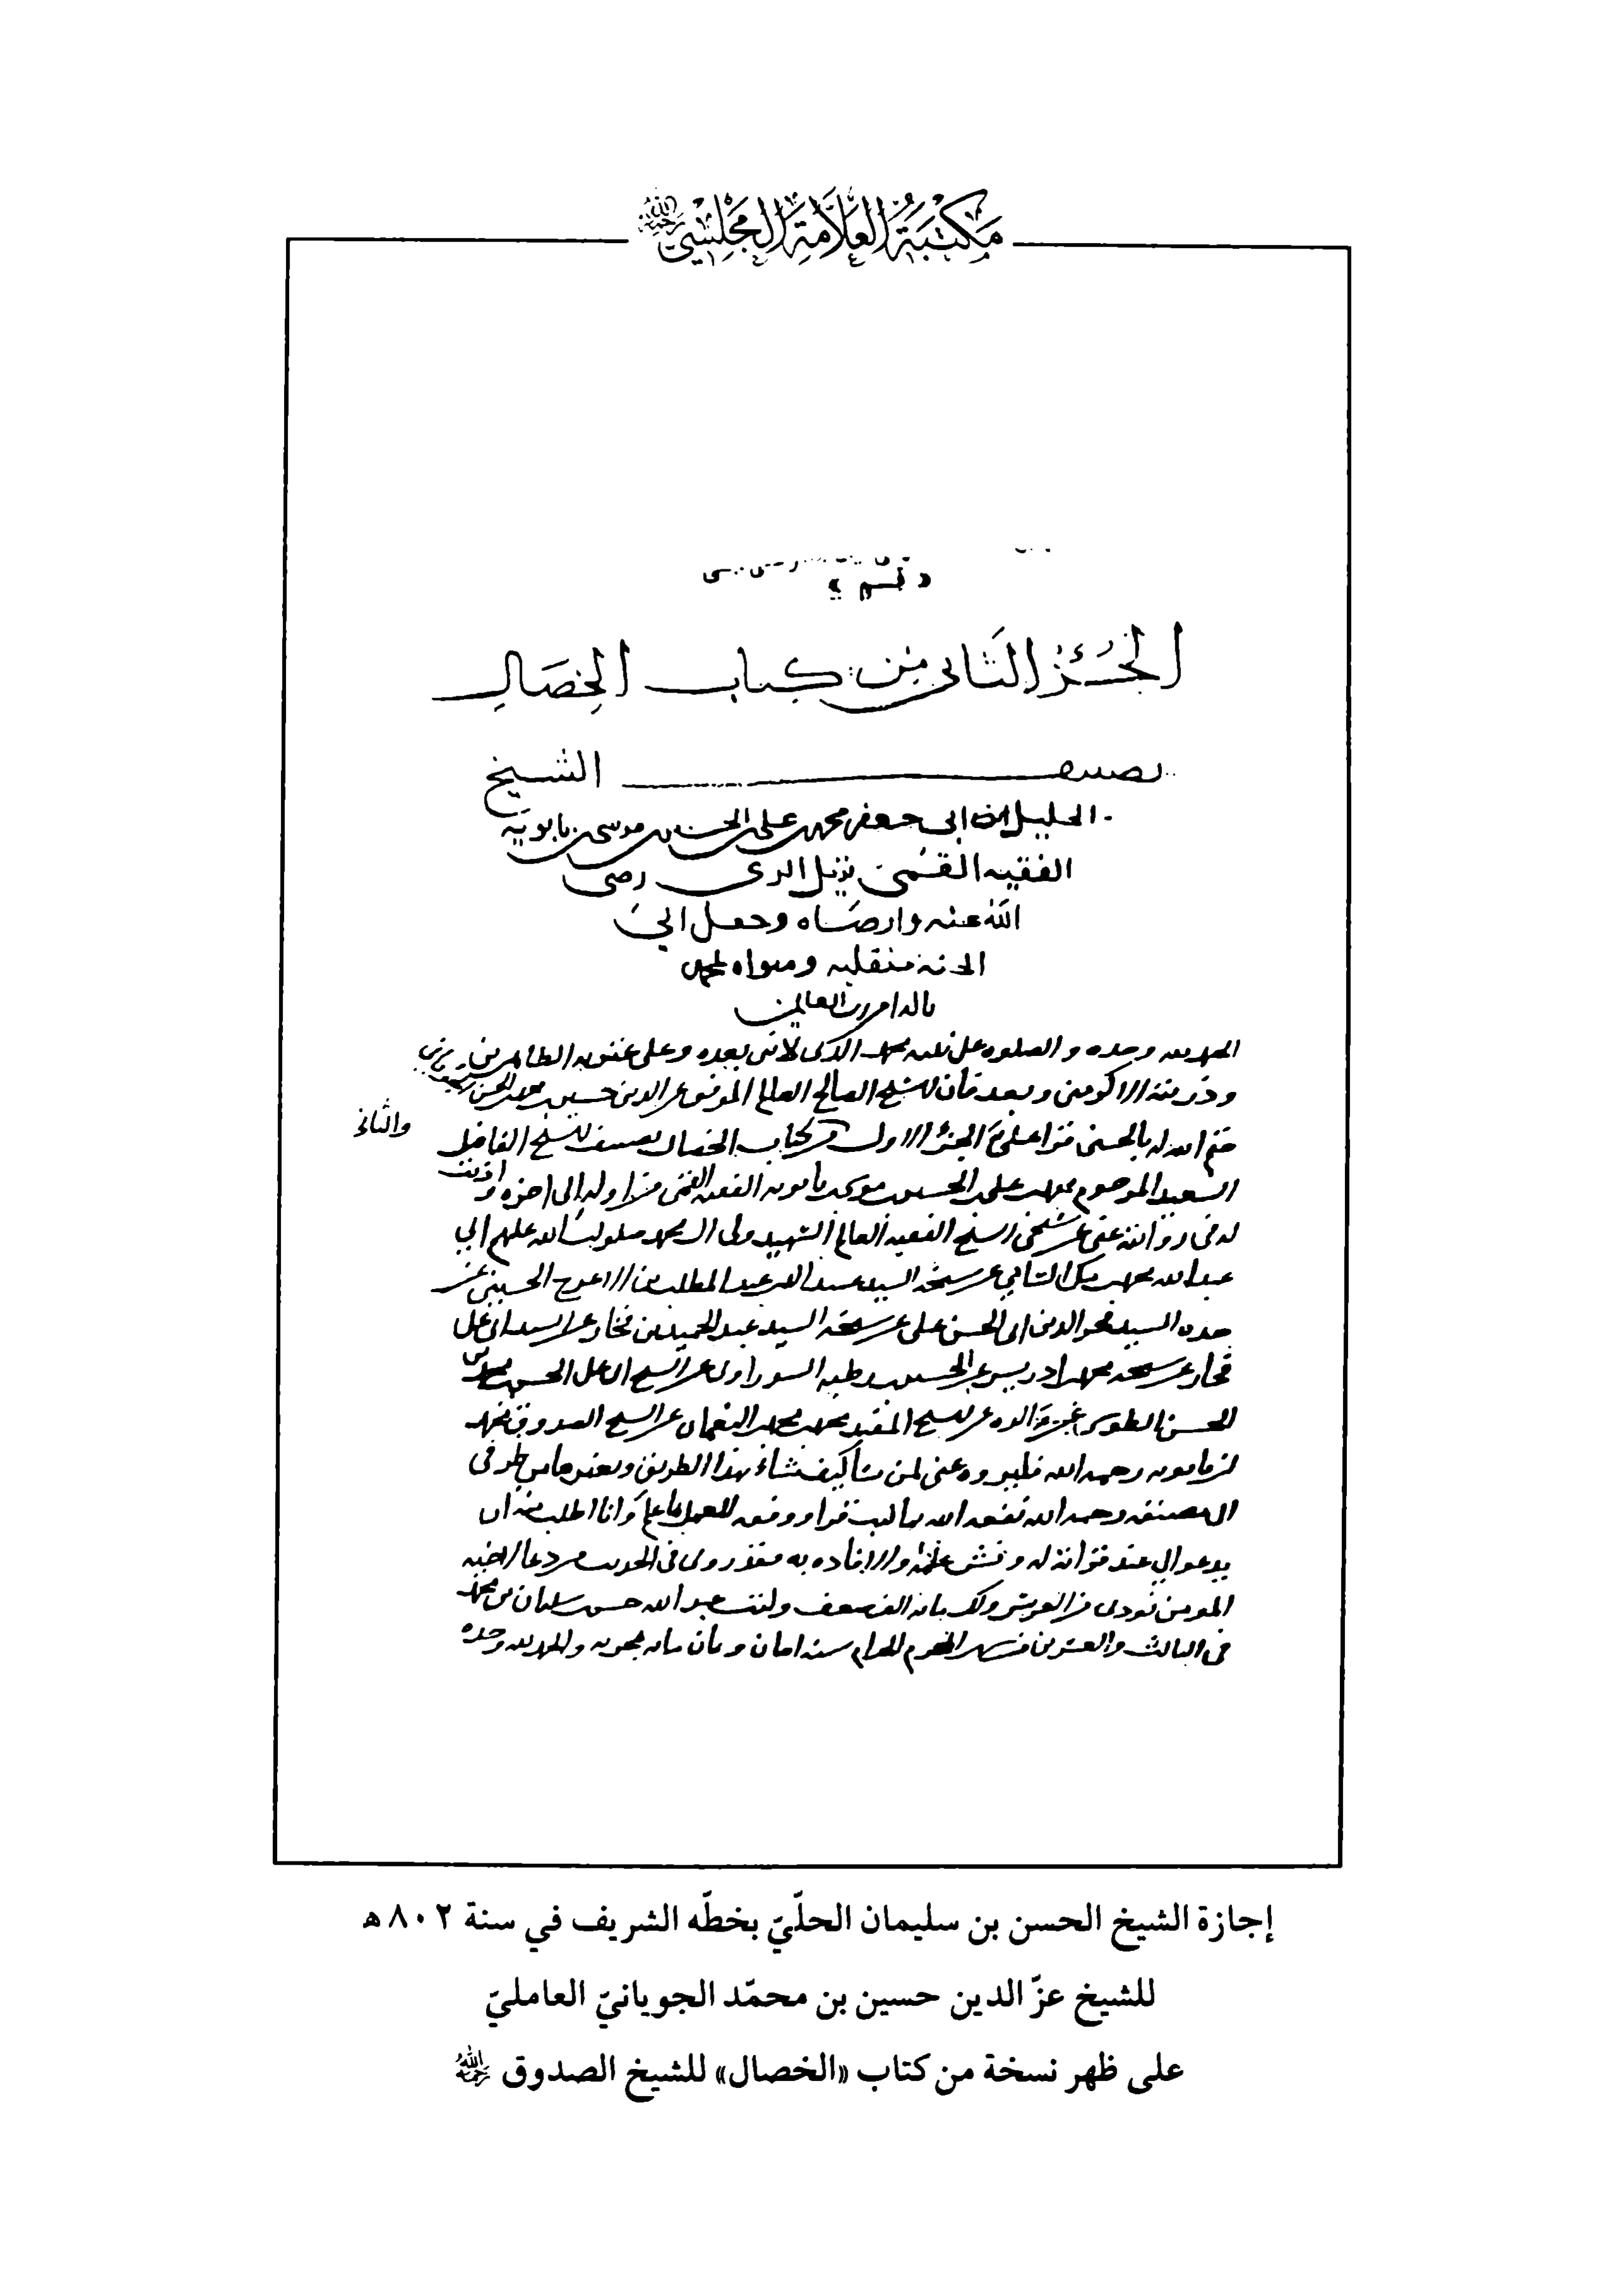 مَكْتَبَةُ العَلَّامَةِ المَجْلِسِيّ رحمه الله
الجُزْءُ الثَّاني مِن كتاب الخِصَالِ
تصنيف الشيخ
الجليل ابي جعفر محمد بن علي بن الحسين بن موسى بن بابويه
الفقيه القُمّي نزيل الري رضي
الله عنه وارضاه وجعل الى
الجنة منقلبه ومثواه بمحمد
واله امين رب العالمين
الحمد لله وحده والصلوة على نبيه محمد الذي لا نبي بعده وعلى عترته الطاهرين
وذريته الاكرمين وبعد فان الشيخ الصالح العالم الموفق عز الدين حسين بن محمد
ختم الله له بالحسنى قرا علي الجزء الاول من كتاب الخصال تصنيف الشيخ الفاضل
والثاني
السعيد المرحوم محمد بن علي بن الحسين بن موسى بن بابويه الفقيه القمي من اوله إلى اخره واذنت
له في روايته عني عن شيخي الشيخ الفقيه العالم الشهيد ولي ال محمد صلوات الله عليهم ابي
عبد الله محمد بن مكي الشامي عن شيخه السيد عبد المطلب بن الاعرج الحسيني عن
جده السيد فخر الدين ابي الحسن علي عن شيخه السيد عبد الحميد بن فخار عن السيد ابي علي
فخار عن شيخه محمد بن ادريس عن الحسين بن رطبه السوراوي عن الشيخ ابي علي الحسن بن محمد بن
الحسن الطوسي عن والده عن الشيخ المفيد محمد بن محمد بن النعمان عن الشيخ الصدوق محمد
بن بابويه رحمه الله فليروه عني لمن شا كيف شاء بهذا الطريق وبغيرها من طرقي
الى مصنفه رحمه الله نفعه الله بما كتب وقرا ووفقه للعمل بما علم وانا اطلب منه ان
يدعو لي عند قرائته له والافاده به فقد روي في الحديث من دعا لاخيه
المومن نودي من العرش ولك مائة الف ضعف وكتب عبد الله حسن بن سليمان بن محمد
في الثالث والعشرين من شهر المحرم الحرام سنه اثنان وثمان مائه هجريه والحمد لله وحده
إجازة الشيخ الحسن بن سليمان الحلّيّ بخطّه الشريف في سنة ٨٠٢ ه
للشيخ عزّ الدين حسين بن محمّد الجويانيّ العامليّ
على ظهر نسخة من كتاب «الخصال» للشيخ الصدوق رحمه الله